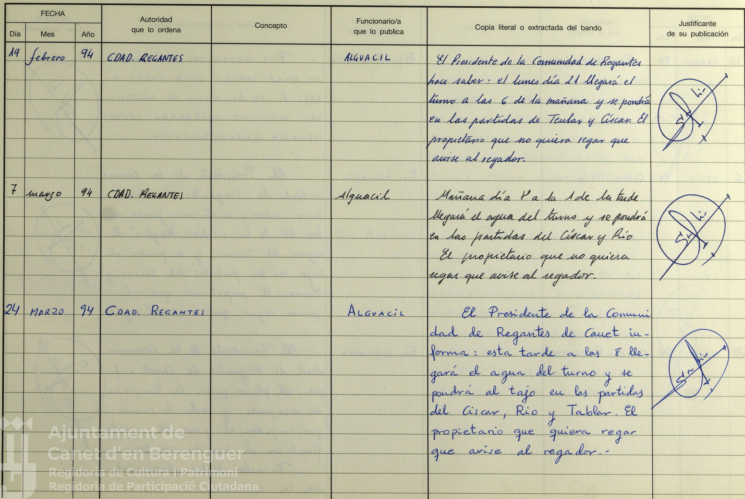 FECHA
Día Mes Año
Autoridad
que lo ordena
Concepto
Funcionario/a
que lo publica
Copia literal o extractada del bando
Justificante
de su publicación
19 febrero 94 CDAD. REGANTES ALGUACIL El Presidente de la Comunidad de Regantes
hace saber: el lunes día 21 llegará el
turno a las 6 de la mañana y se pondrá
en las partidas de Teular y Ciscar. El
propietario que no quiera regar que
avise al regador.
7 marzo 94 CDAD. REGANTES Alguacil Mañana día 8 a la 1 de la tarde
llegará el agua del turno y se pondrá
en las partidas del Ciscar y Rio
El propietario que no quiera
regar que avise al regador.
24 MARZO 94 CDAD. REGANTES ALGUACIL El Presidente de la Comuni
dad de Regantes de Canet in-
forma: esta tarde a las 8 lle-
gará el agua del turno y se
pondrá al tajo en las partidas
del Ciscar, Rio y Tablar. El
propietario que quiera regar
que avise al regador.-
Ajuntament de
Canet d'en Berenguer
Regidoria de Cultura i Patrimoni
Regidoria de Participació Ciutadana